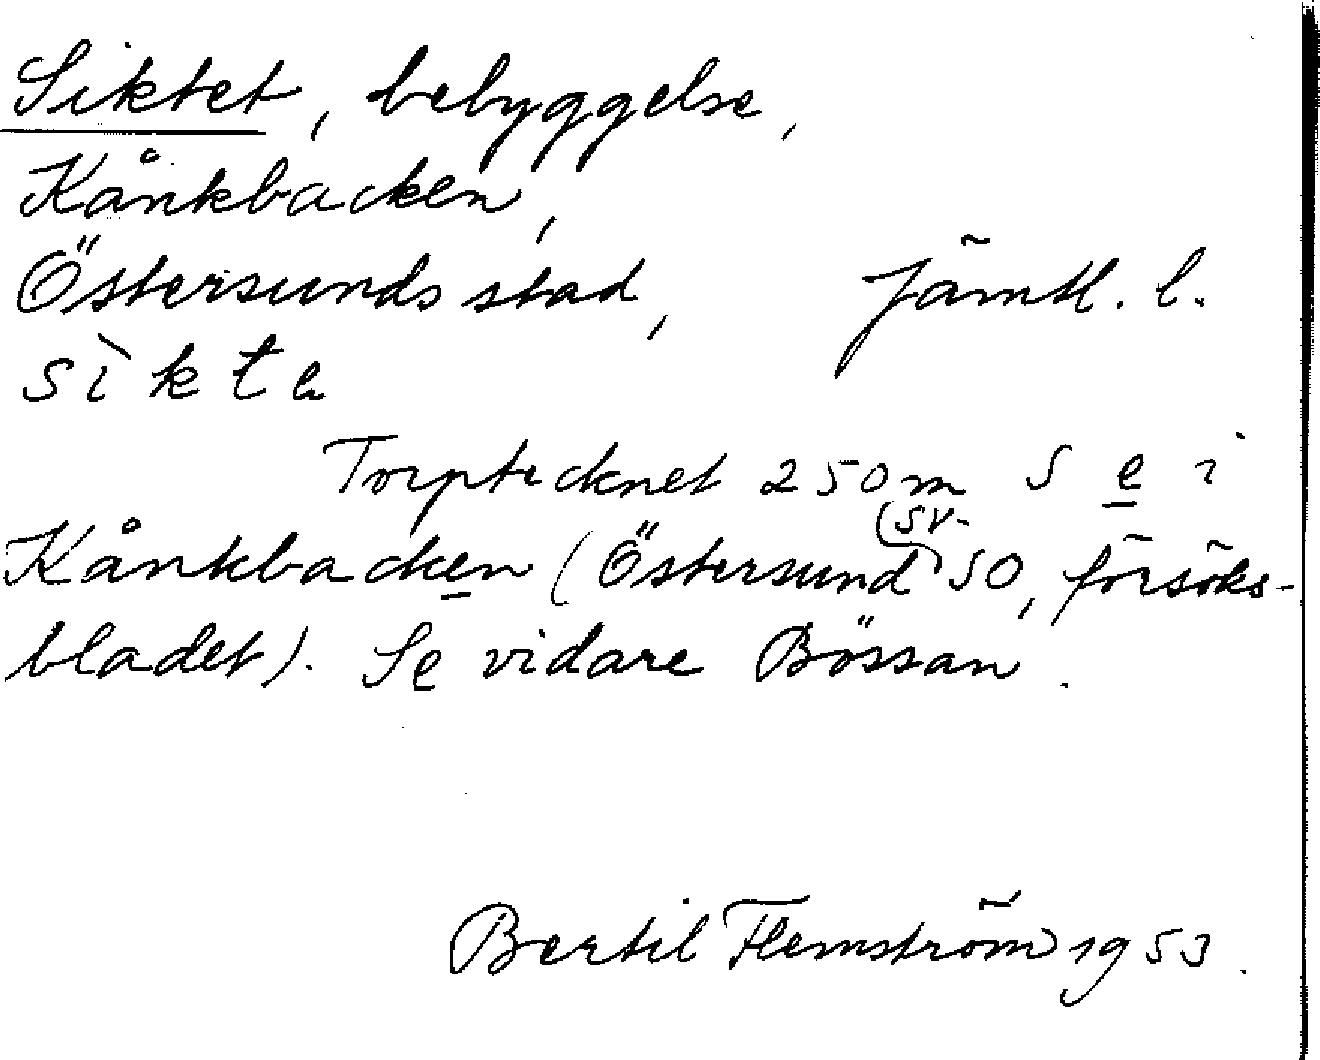 Siktet, bebyggelse,
Kånkbacken,
Östersunds stad, Jämtl. l.
sìkte
Torptecknet 250 m S e i
Kånkbacken (Östersund (SV-) SO, försöks-
bladet). Se vidare Bössan.
Bertil Flemström 1953.